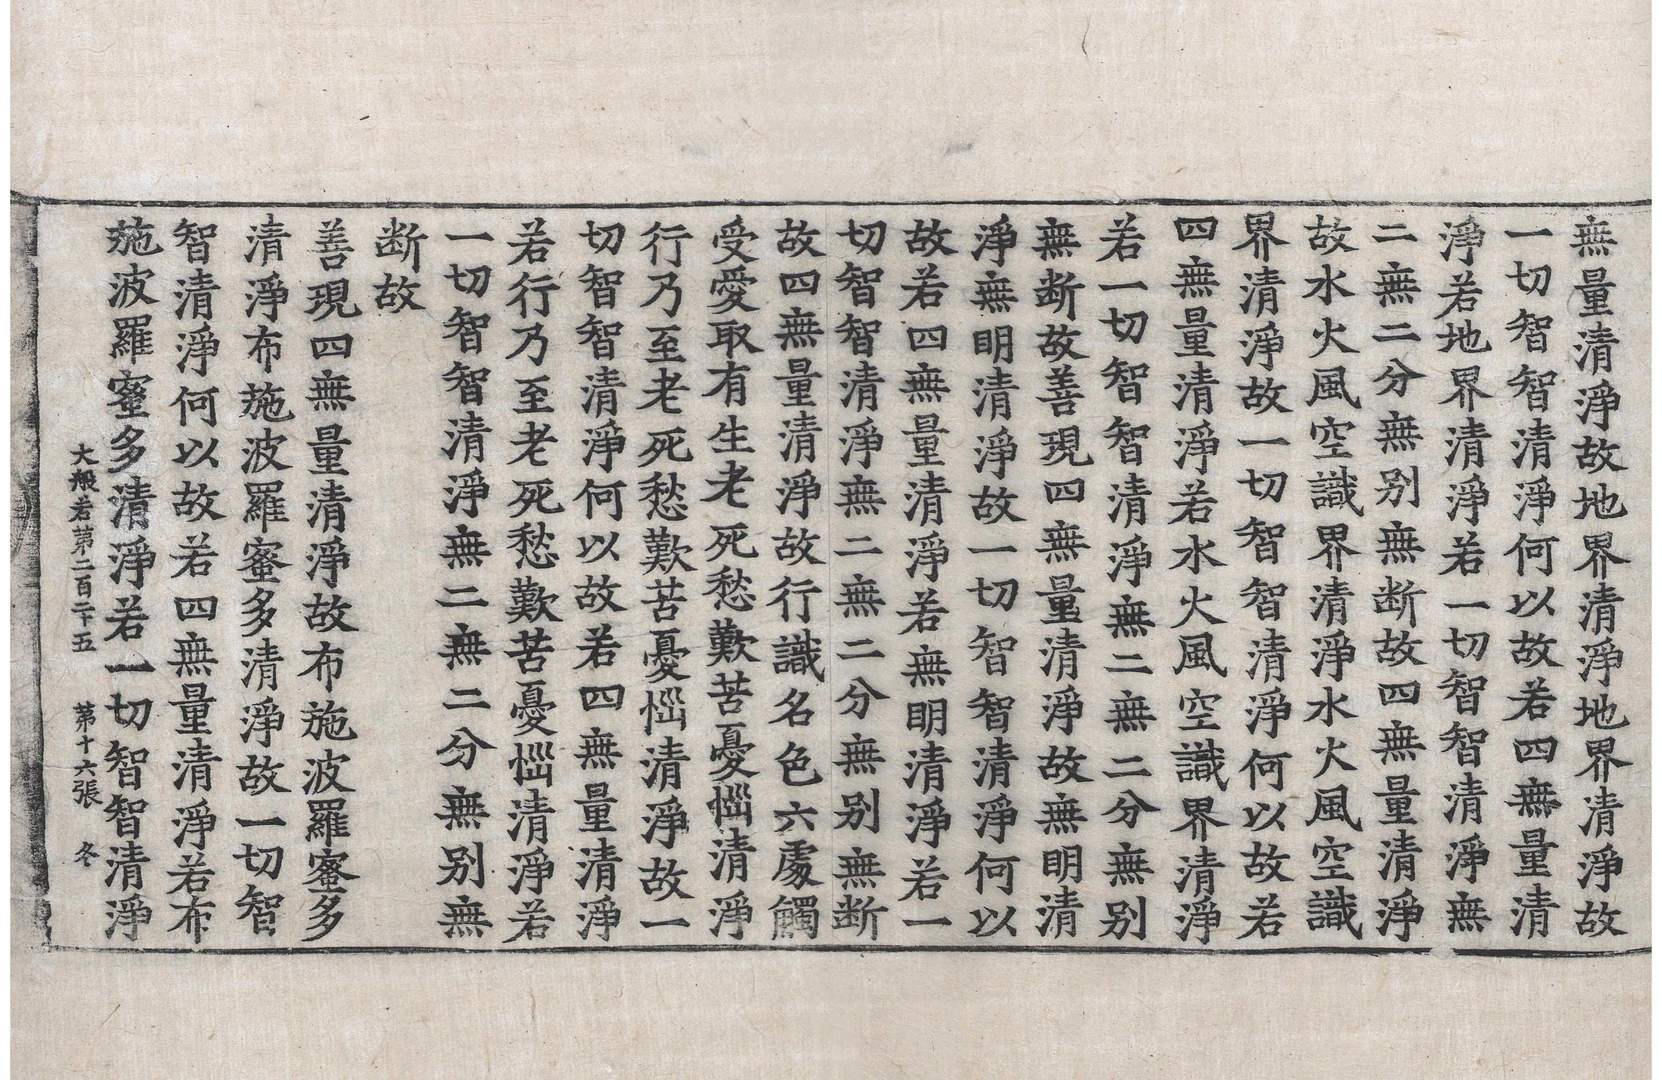 無量清淨故地界清淨地界清淨故
一切智智清淨何以故若四無量清
淨若地界清淨若一切智智清淨無
二無二分無别無断故四無量清淨
故水火風空識界清淨水火風空識
界清淨故一切智智清淨何以故若
四無量清淨若水火風空識界清淨
若一切智智清淨無二無二分無别
無断故善現四無量清淨故無明清
淨無明清淨故一切智智清淨何以
故若四無量清淨若無明清淨若一
切智智清淨無二無二分無别無断
故四無量清淨故行識名色六處觸
受愛取有生老死愁歎苦憂惱清淨
行乃至老死愁歎苦憂惱清淨故一
切智智清淨何以故若四無量清淨
若行乃至老死愁歎苦憂惱清淨若
一切智智清淨無二無二分無别無
断故
善現四無量清淨故布施波羅蜜多
清淨布施波羅蜜多清淨故一切智
智清淨何以故若四無量清淨若布
施波羅蜜多清淨若一切智智清淨
大般若第二百二十五 第十六張 冬